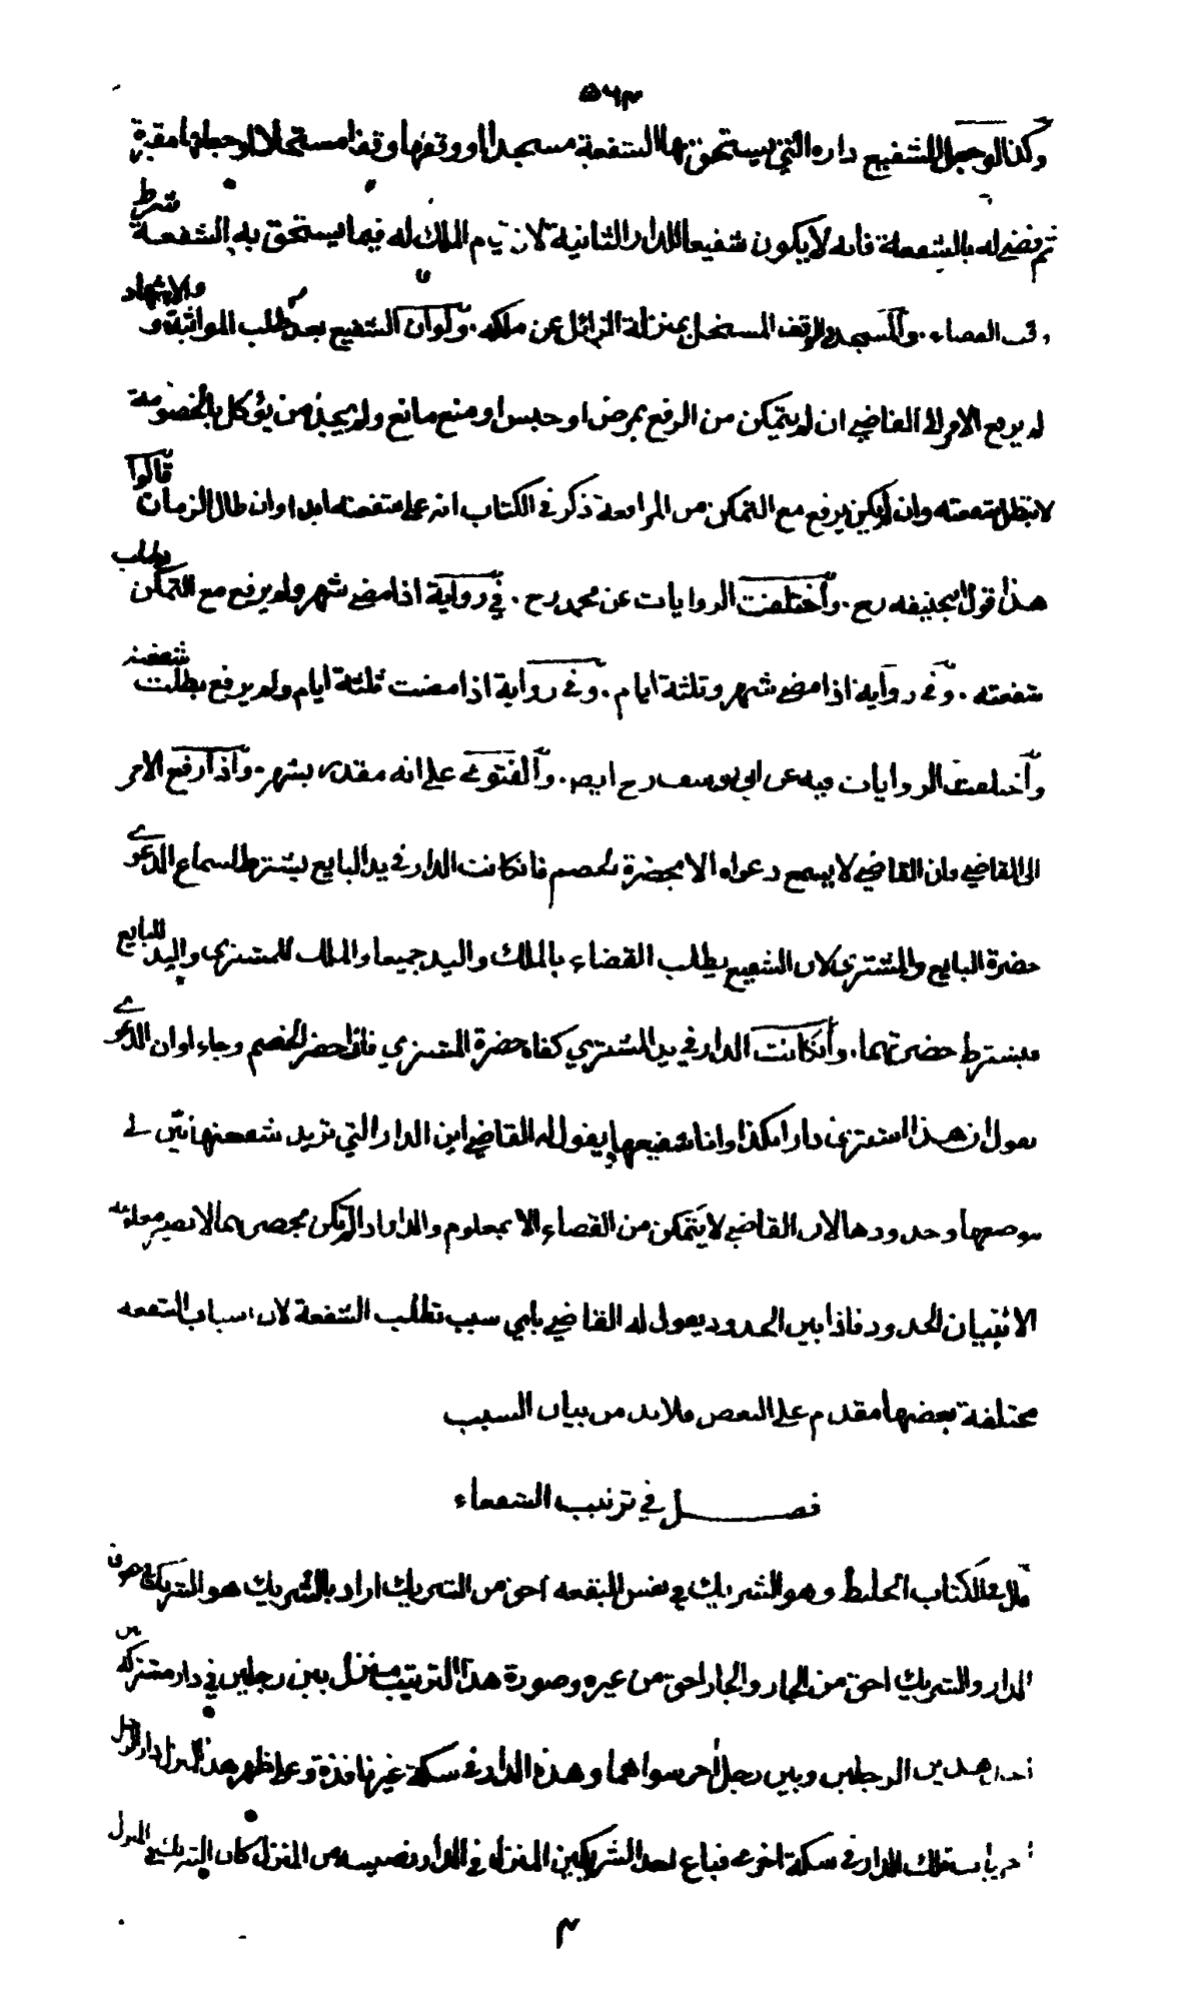 ٥٦٣
وكذا لو جعل الشفيع داره التي يستحق بها الشفعة مسجدا او وقفها وقفا مستجلا او جعلها مقبرة
ثم قضي له بالشفعة فانه لا يكون شفيعا للدار الثانية لان قيام الملك له فيما يستحق به الشفعة شرط
وقت القضاء . والمسجد والوقف المسجل بمنزلة الزائل عن ملكه . ولو ان الشفيع بعد طلب المواثبة و والاشهاد
لم يرفع الامر الى القاضي ان لم يتمكن من الرفع بمرض او حبس او منع مانع ولم يجد من يؤكل بالخصومة
لا تبطل شفعته وان لم يكن يرفع مع التمكن من المرافعة ذكر في الكتاب انه على شفعته ابدا وان طال الزمان قالوا
هذا قول ابي حنيفه رح . واختلفت الروايات عن محمد رح . في رواية اذا مضى شهر ولم يرفع مع التمكن بطلت
شفعته . وفي رواية اذا مضى شهر وثلثة ايام . وفي رواية اذا مضت ثلثة ايام ولم يرفع بطلت شفعته
واختلفت الروايات فيه عن ابي يوسف رح ايضا . والفتوى على انه مقدر بشهر . واذا رفع الامر
الى القاضي فان القاضي لا يسمع دعواه الا بحضرة الخصم فان كانت الدار في يد البايع يشترط لسماع الدعوى
حضرة البايع والمشتري لان الشفيع يطلب القضاء بالملك واليد جميعا والملك للمشتري واليد للبايع
فيشترط حضرتهما . وان كانت الدار في يد المشتري كفاه حضرة المشتري فاذا حضر الخصم وجاء اوان الدعوى
يقول ان هذا اشترى دارا بكذا وانا شفيعها يقول له القاضي اين الدار التي تريد شفعتها بيّن لي
موضعها وحدودها لان القاضي لا يتمكن من القضاء الا بمعلوم والدار اذا لم تكن بحضرتهما لا تصير معلومة
الا ببيان الحدود فاذا بين الحدود يقول له القاضي باي سبب تطلب الشفعة لان اسباب الشفعه
مختلفة بعضها مقدم على البعض فلا بد من بيان السبب
فصل في ترتيب الشفعاء
قال في الكتاب الخليط وهو الشريك في نفس البقعه احق من الشريك اراد بالشريك هو الشريك في حقوق
الدار والشريك احق من الجار والجار احق من غيره وصورة هذا الترتيب منزل بين رجلين في دار مشتركة بين
احد هذين الرجلين وبين رجل اخر سواهما وهذه الدار في سكة غير نافذة وعلى ظهر هذا المنزل دار لرجل
اخر باب تلك الدار في سكة اخرى فباع احد الشريكين المنزل في الدار نصيبه من المنزل كان الشريك في المنزل